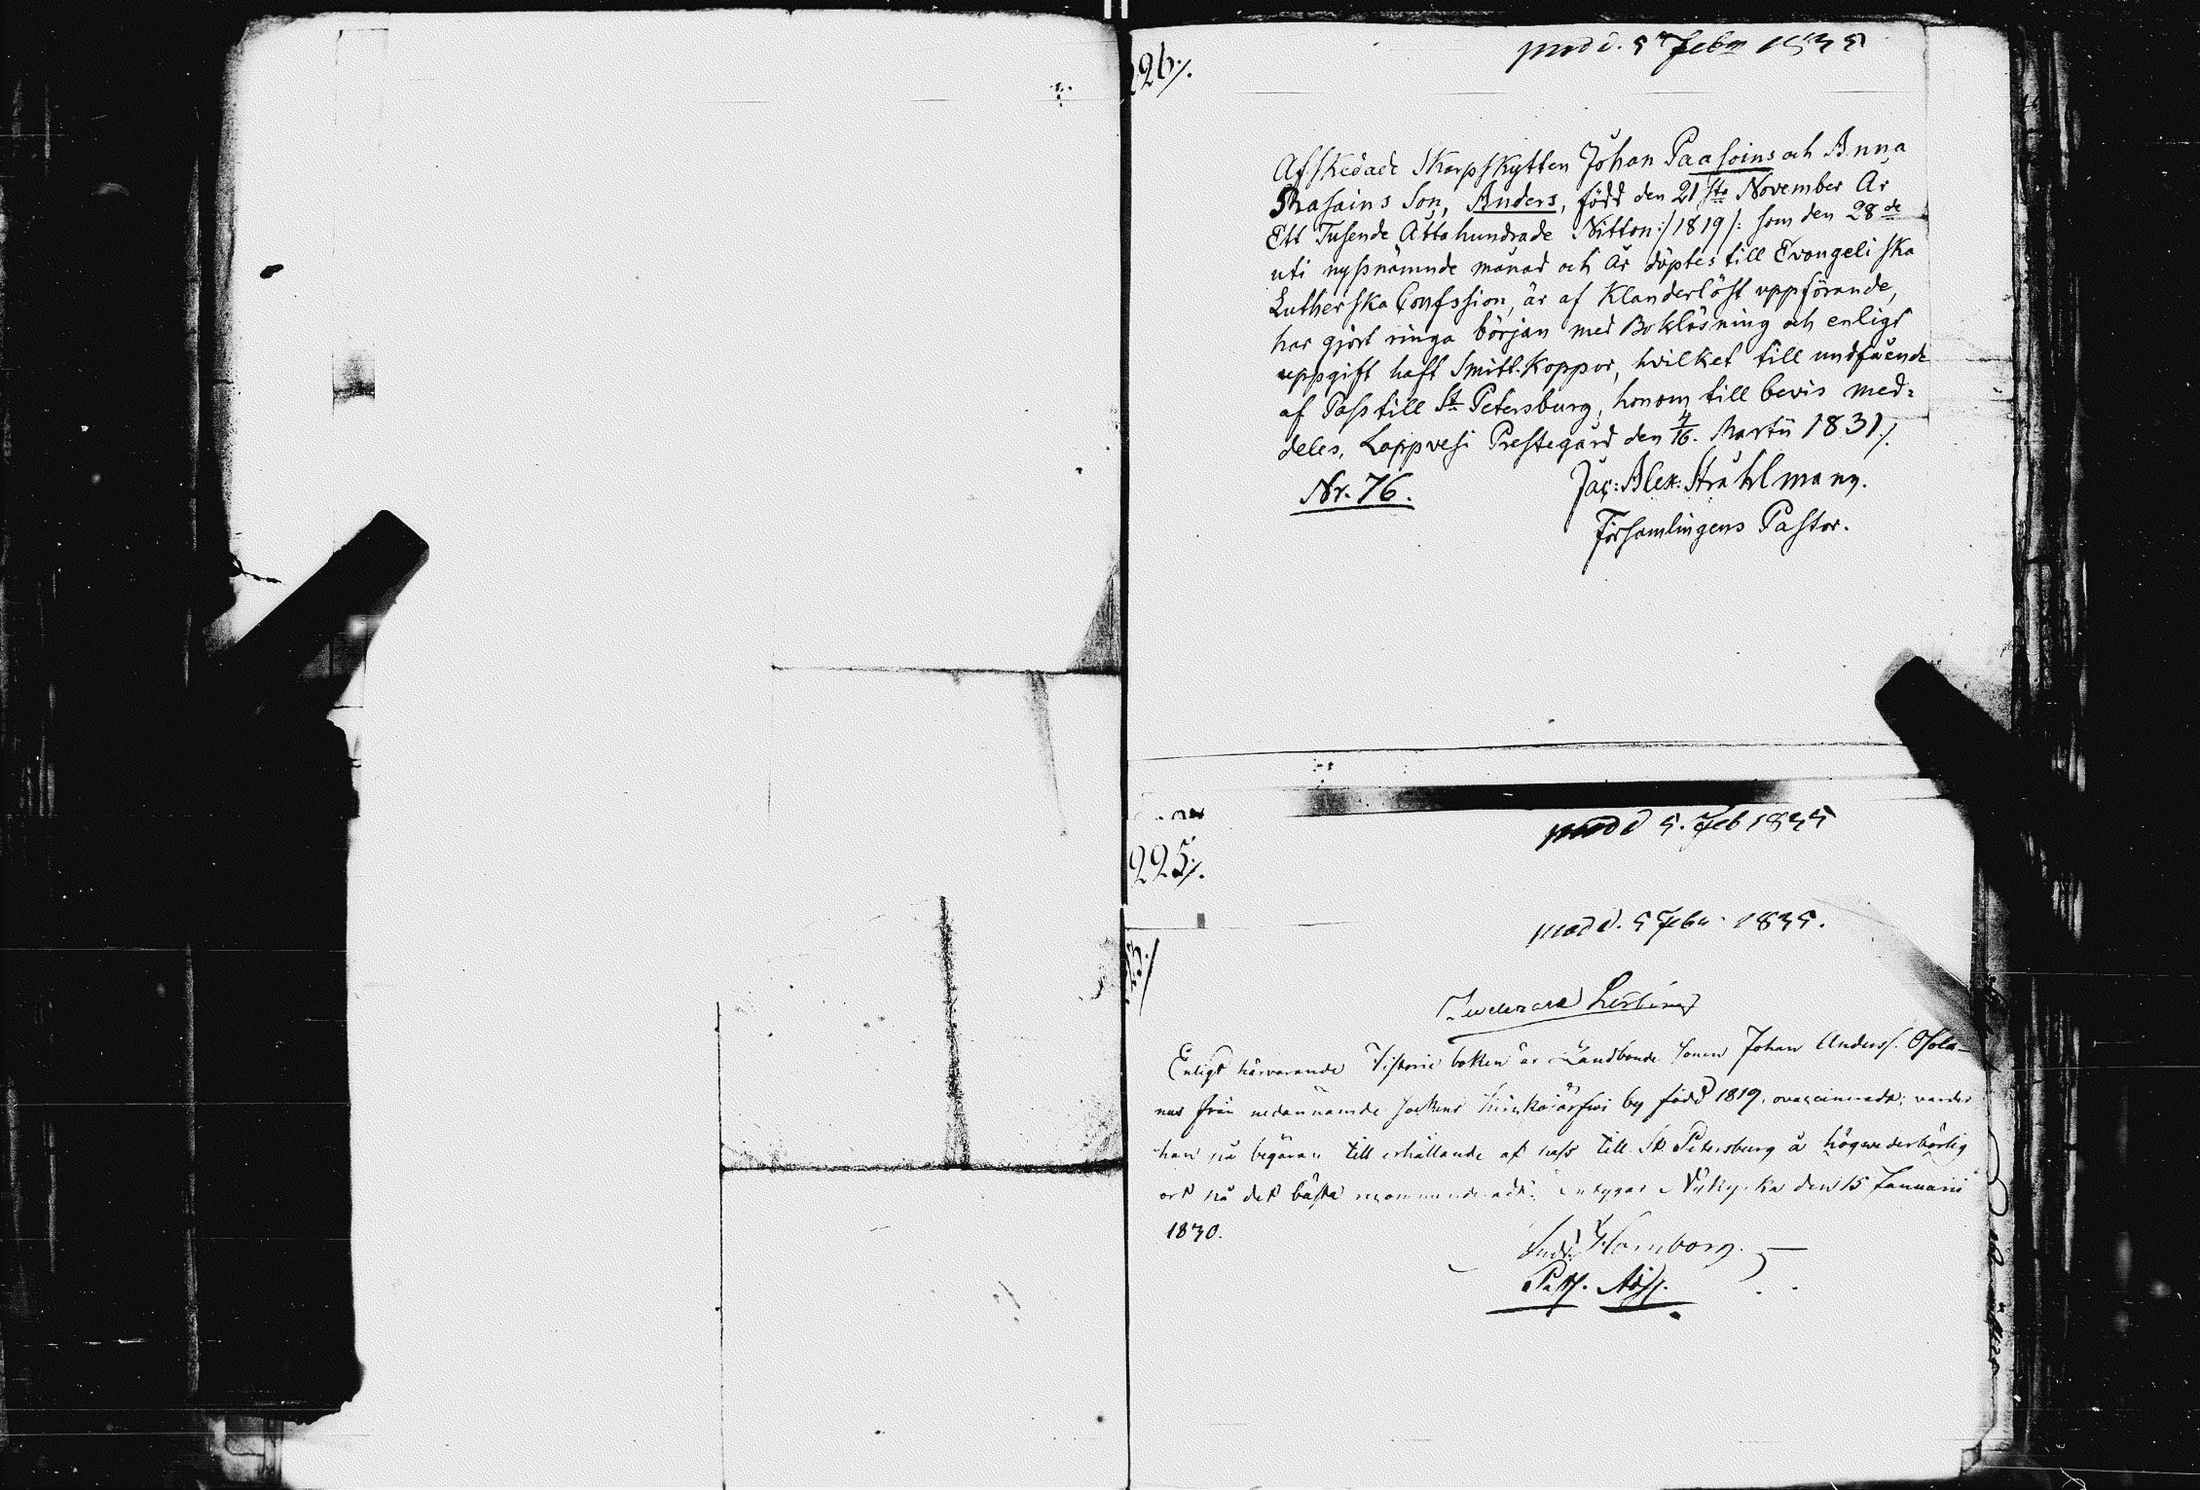 226./.
prod d. 5 Febr 1835
Afskedade Skarpskytten Johan Paasoins och Anna
Rasains Son, Anders, född den 21ste November År
Ett Tusende Åttahundrade Nitton :/1819/: som den 28de
uti nyssnämnde månad och år döptes till Evangeliska
Lutherska Confssion, är af Klanderlöst uppförande,
har gjort ringa början med Bokläsning och enligt
uppgift haft Smitt-Koppor, hvilket till undfående
af Pass till St Petersburg, honom till bevis med-
deles, Lappvesi Prestegård den 4/16. Martii 1831./.
Nr. 76.
Jac: Alex: Stråhlmann.
Församlingens Pastor.
prod d 5. Feb 1835
225./.
prod d. 5 Febr 1835.
Enligt härvarande Historie boken är Landbonde sonen Johan Anders. Osola-
nus från nedannämde sockens by född 1819, ovaccinerad; varder
han på begäran till erhållande af pass till St. Petersburg å högvederbörlig
ort på det bästa recommenderad; intygar Nykyrka den 15 Januarii
1830.
And. Hornborg.
Past. Adj.